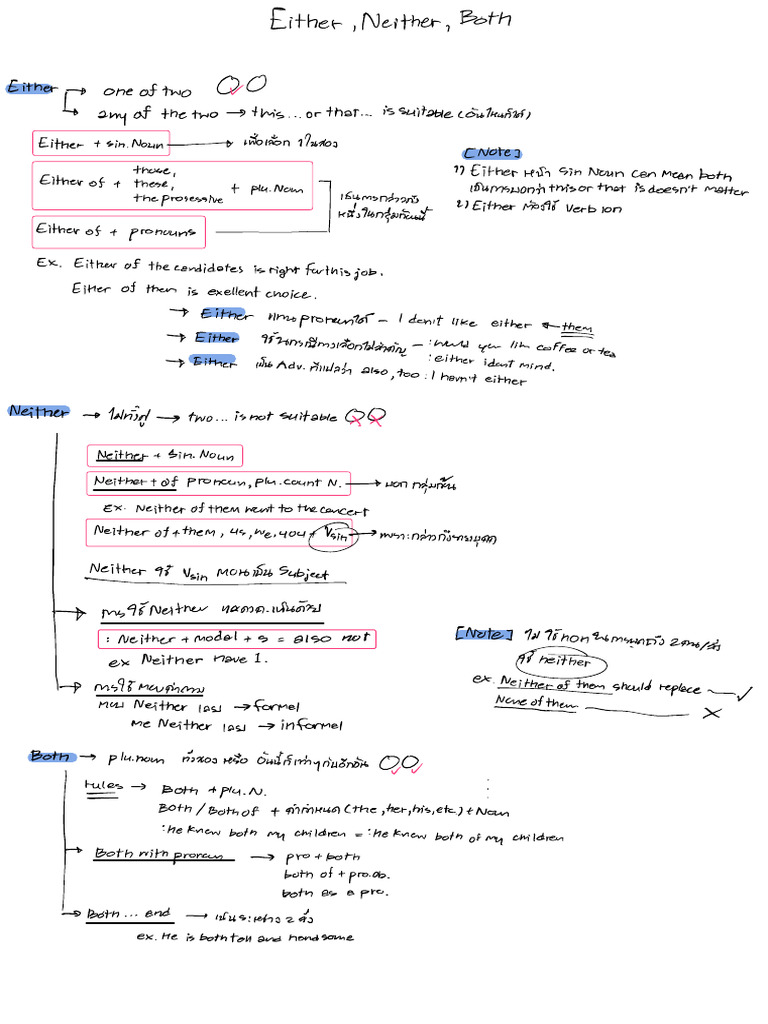 Either, Neither, Both
Either → one of two
→ any of the two → this... or that... is suitable (อันไหนก็ได้)
Either + sin. Noun → เพื่อเลือก 1 ในสอง
Either of + those, these, the prosessive + plu. Noun
Either of + pronouns
เป็นการกล่าวถึง
หนึ่งในกลุ่มกันนี้
[Note]
1) Either หน้า sin Noun can mean both
เป็นการบอกว่า this or that is doesn't matter
2) Either ต้องใช้ Verb
Ex. Either of the candidates is right for this job.
Either of them is exellent choice.
→ Either แทน pronoun ได้ - I don't like either ← them
→ Either ใช้ในกรณีการเลือกไม่สำคัญ - : would you like coffee or tea
: either I dont mind.
→ Either เป็น Adv. ที่แปลว่า also, too : I havn't either
Neither → ไม่ทั้งคู่ → two... is not suitable
Neither + sin. Noun
Neither + of pronoun, plu. count N. → บอกกลุ่ม
Ex. Neither of them went to the concert
Neither of + them, us, we, you + Vsin → เพราะกล่าวถึง
Neither ใช้ Vsin ตอนเป็น Subject
→ การใช้ Neither
: Neither + model + s = also not
ex Neither have I.
→ การใช้ตอบคำถาม
ตอบ Neither เฉยๆ → formel
me Neither เฉยๆ → informel
[Note] ไม่ใช้ non ในการพูดถึง 2 คน/สิ่ง
ใช้ neither
ex. Neither of them should replace ✓
None of them ✗
Both → plu. noun ทั้งสอง หรือ
rules → Both + plu. N.
Both / Both of + คำกำหนด (the, her, his, etc.) + Noun
: he knew both my children = : he knew both of my children
→ Both with pronoun → pro + both
both of + pro.ob.
both as a pro.
→ Both ... and → เป็นระหว่าง 2 สิ่ง
ex. He is both tall and handsome